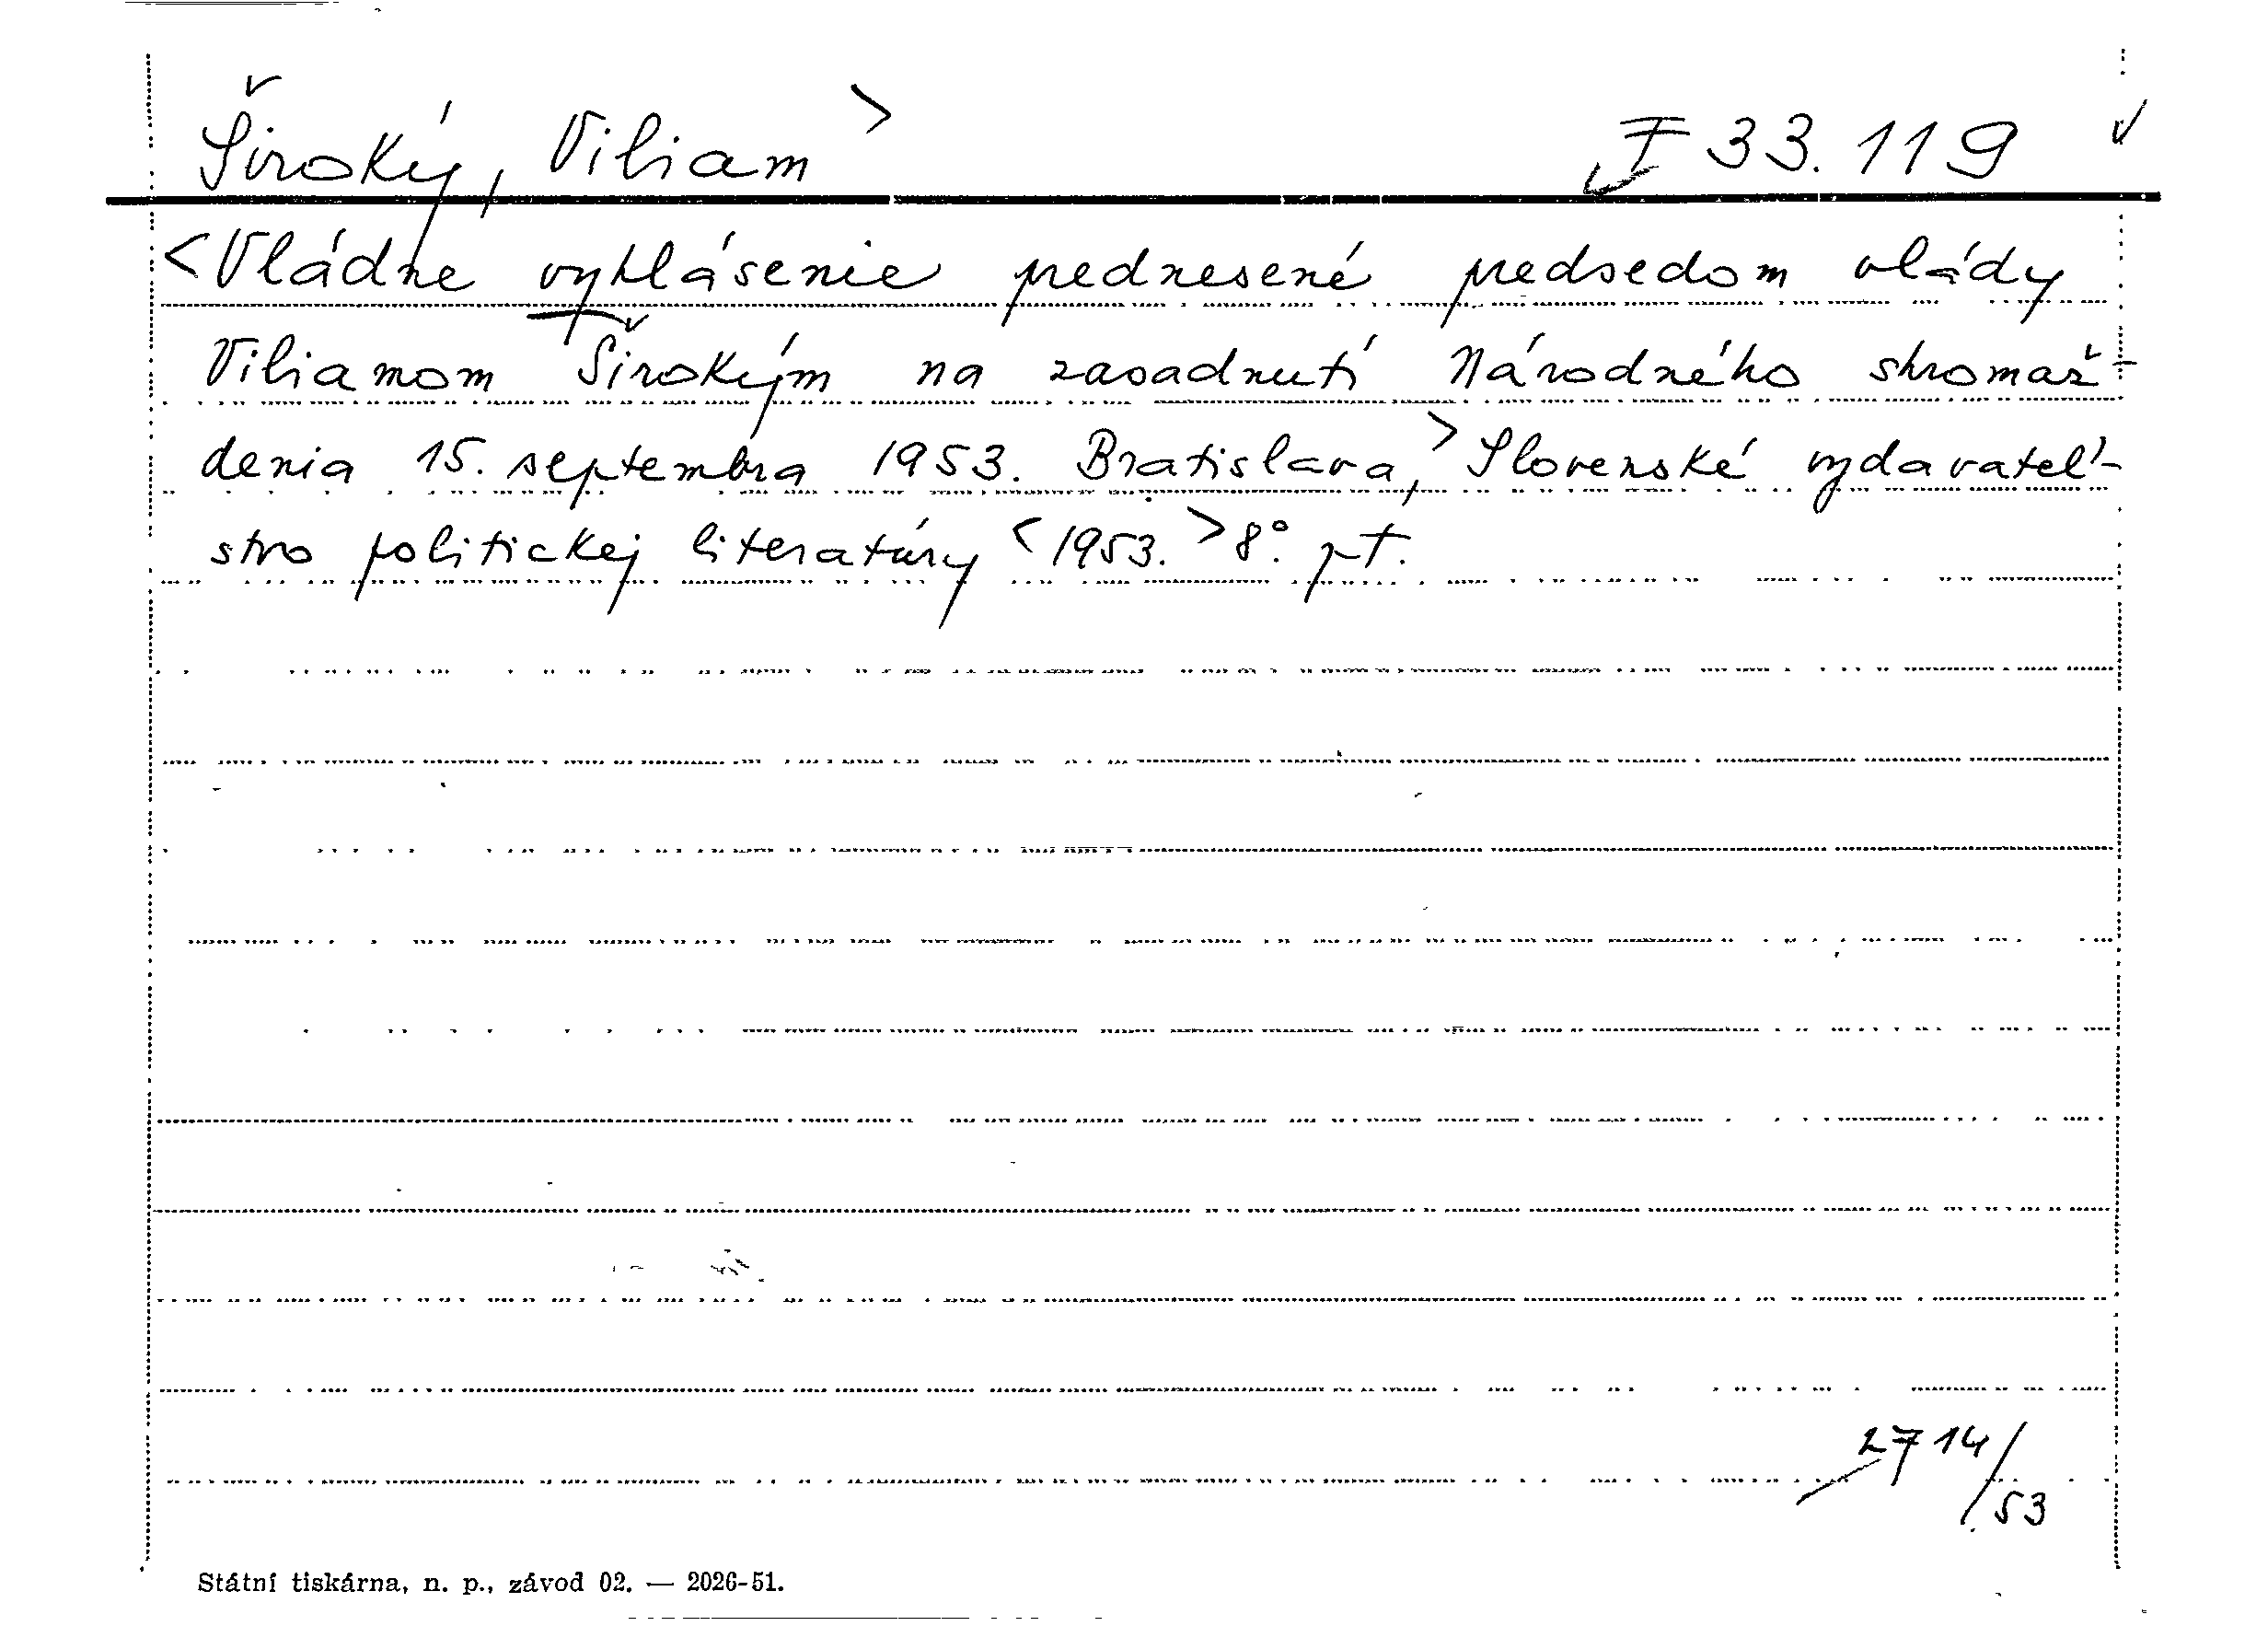 Široký, Viliam > F 33.119 ✓
<Vládne vyhlásenie prednesené predsedom vlády
Viliamom Širokým na zasadnutí Národného shromaž-
denia 15. septembra 1953. Bratislava,> Slovenské vydavateľ-
stvo politickej literatúry <1953.> 8°. pt.
2714/53
Státní tiskárna, n. p., závod 02. — 2026-51.